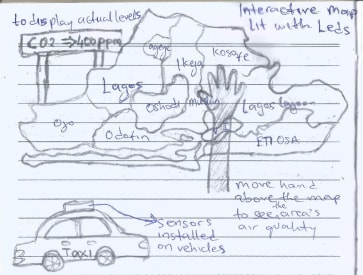 to display actual levels
Interactive map
lit with Leds
CO2 ⇒400ppm
agege
Ikeja
Kosofe
Lagos
Oshodi
mushin
Lagos Lagoon
Ojo
Odofin
ETI OSA
move hand
above the map
to see the area's
air quality
sensors
installed
on vehicles
TAXI